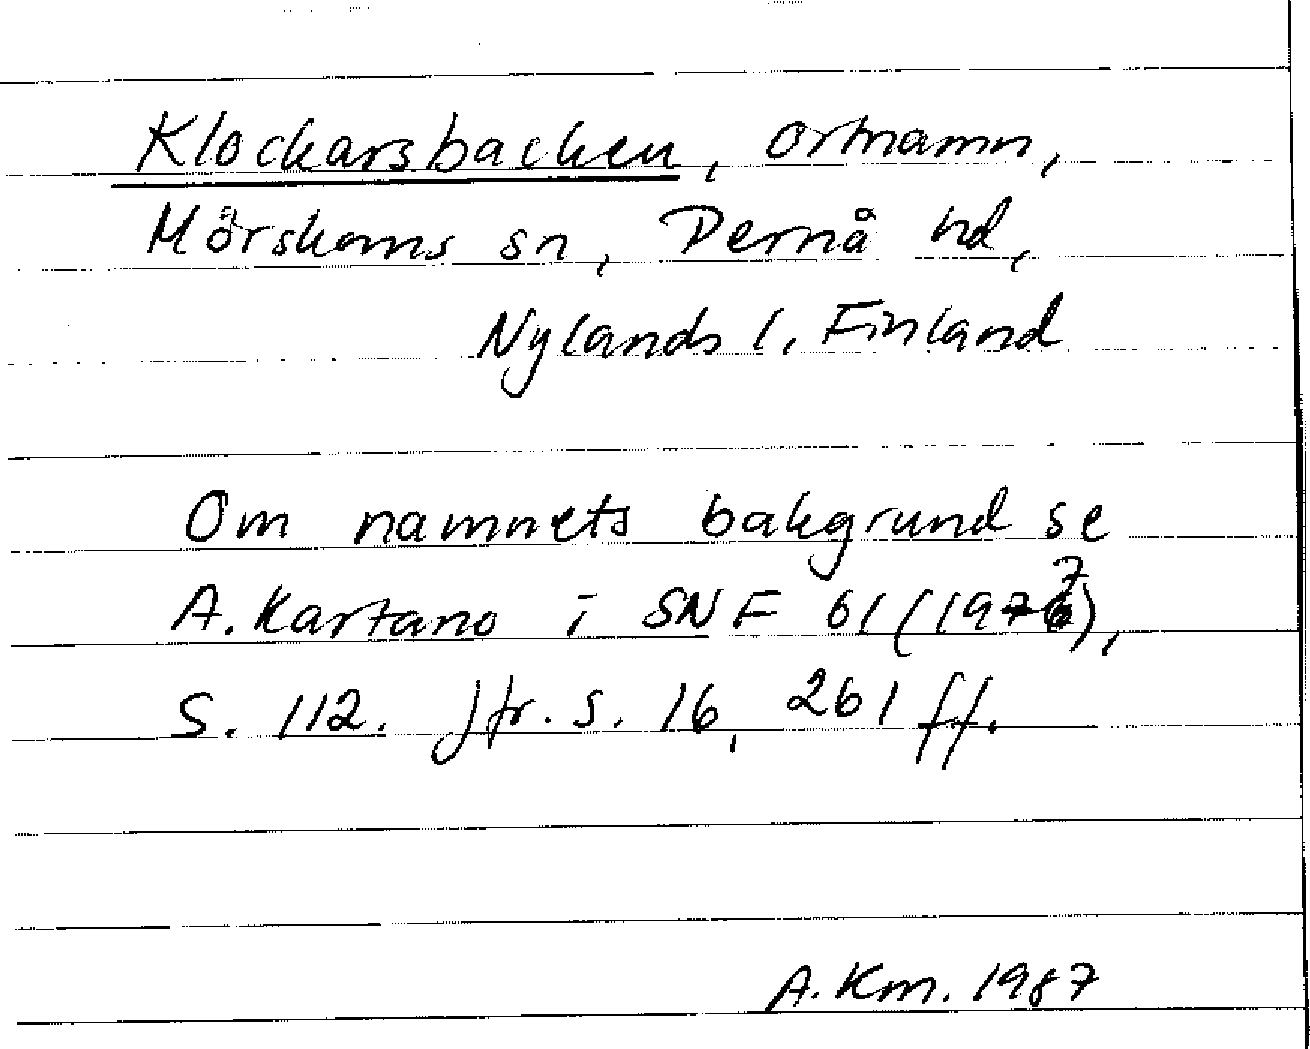 Klockarsbacken, ortnamn,
Mörskoms sn, Pernå hd,
Nylands l, Finland
Om namnets bakgrund se
A. Kartano i SNF 61 (1977),
s. 112. Jfr. s. 16, 261 ff.
A. Km. 1987